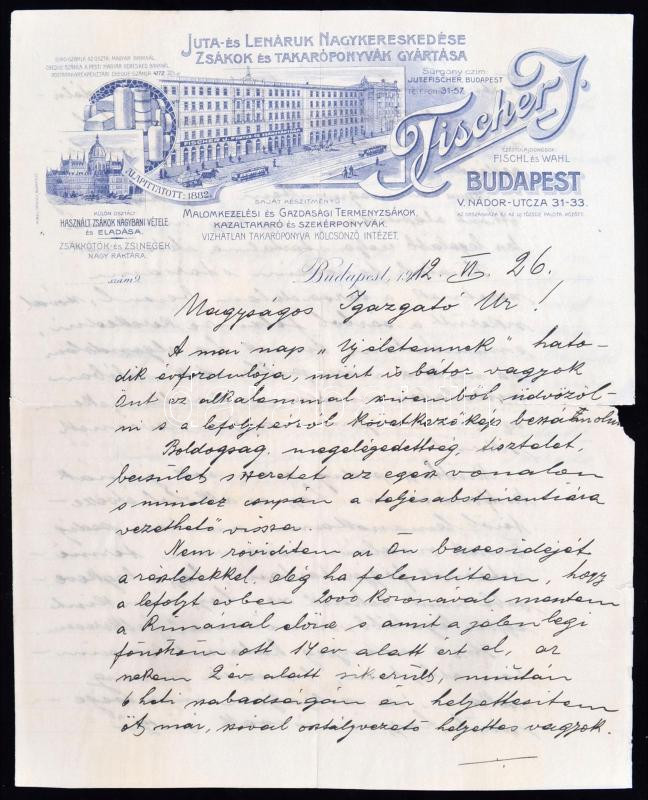 JUTA- ÉS LENÁRUK NAGYKERESKEDÉSE
ZSÁKOK ÉS TAKARÓPONYVÁK GYÁRTÁSA
Sürgöny czim:
JUTEFISCHER, BUDAPEST
TELEFON 31-57.
Fischer J.
FISCHL ÉS WAHL
BUDAPEST
V. NÁDOR-UTCZA 31-33.
ALAPITTATOTT: 1882.
KÜLÖN OSZTÁLY
HASZNÁLT ZSÁKOK NAGYBANI VÉTELE
ÉS ELADÁSA.
ZSÁKKÖTŐK- ÉS ZSINEGEK
NAGY RAKTÁRA.
SAJÁT KÉSZITMÉNYŰ
MALOMKEZELÉSI ÉS GAZDASÁGI TERMÉNYZSÁKOK,
KAZALTAKARÓ ÉS SZEKÉRPONYVÁK.
VIZHATLAN TAKARÓPONYVA KÖLCSÖNZŐ INTÉZET.
szám
Budapest, 1912. VI. 26.
Nagyságos Igazgató Ur!
A mai nap „Uj életemnek" hato-
dik évfordulója, miért is bátor vagyok
Önt ez alkalommal szivemből üdvözöl-
ni s a lefolyt évről következőkép beszámolni
Boldogság, megelégedettség, tisztelet,
becsület szeretet az egész vonalon
s mindez csupán a teljes abstinentiára
vezethető vissza.
Nem röviditem az Ön becses idejét
a részletekkel, elég ha felemlitem, hogy
a lefolyt évben 2000 Koronával mentem
a Rimánál előre s amit a jelenlegi
főnököm ott 14 év alatt ért el, az
nekem 2 év alatt sikerült, miután
6 heti szabadságán én helyettesitem
őt már, szóval osztályvezető helyettes vagyok.